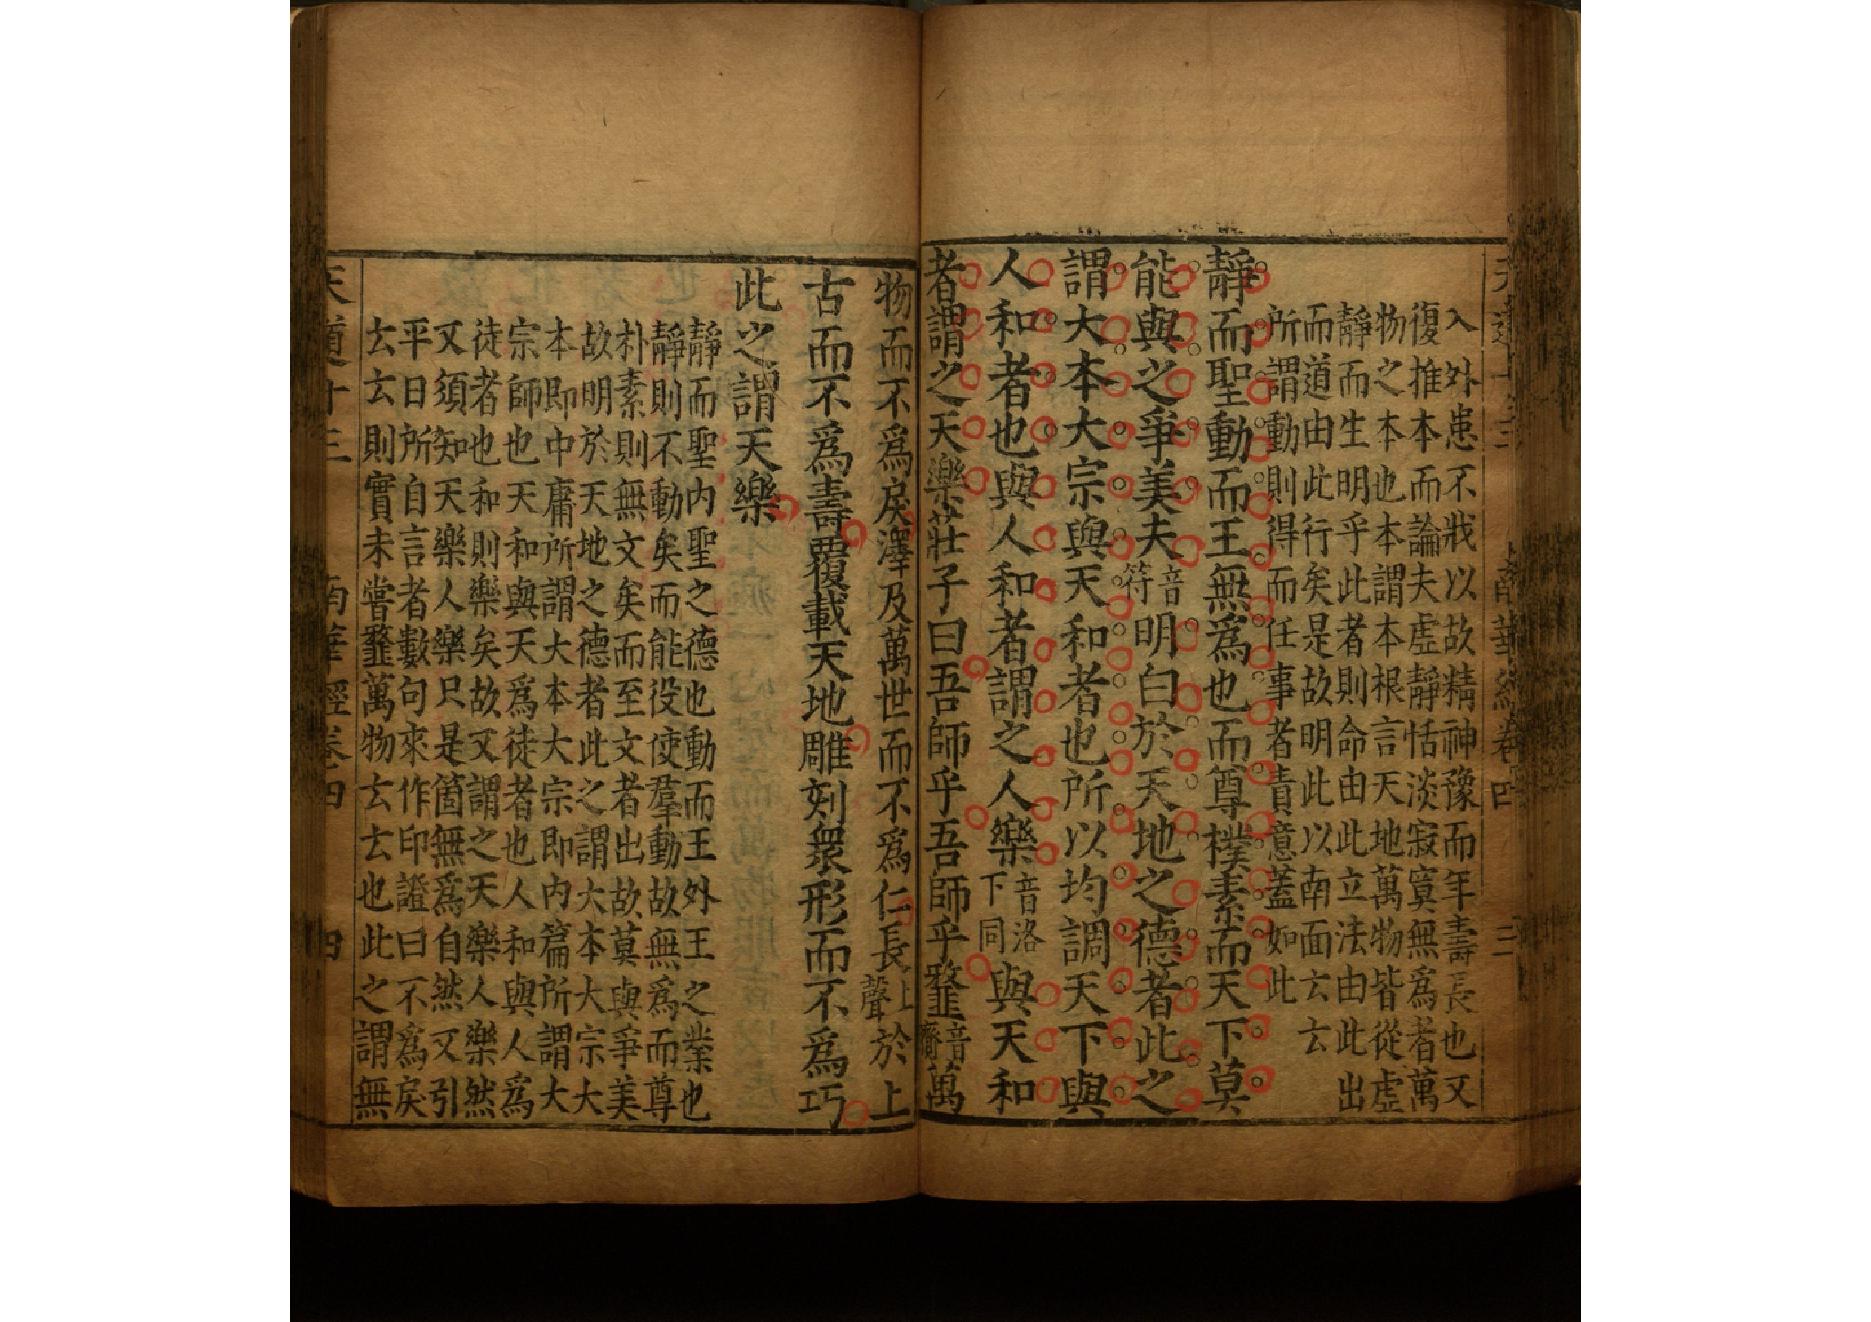 入外患不戕以故精神豫而年壽長也又
復推本而論夫虛靜恬淡寂寞無爲者萬
物之本也本謂本根言天地萬物皆從虛
靜而生明乎此者則命由此立法由此出
而道由此行矣是故明此以南面云云
所謂動則得而任事者責意蓋如此
靜而聖動而王無爲也而尊樸素而天下莫
能與之爭美夫音符明白於天地之德者此之
謂大本大宗與天和者也所以均調天下與
人和者也與人和者謂之人樂音洛下同與天和
者謂之天樂莊子曰吾師乎吾師乎䪡音齏萬
物而不爲戾澤及萬世而不爲仁長上聲於上
古而不爲壽覆載天地雕刻衆形而不爲巧
此之謂天樂
靜而聖內聖之德也動而王外王之業也
靜則不動矣而能役使羣動故無爲而尊
朴素則無文矣而至文者出故莫與爭美
故明於天地之德者此之謂大本大宗大
本即中庸所謂大本大宗即內篇所謂大
宗師也天和與天爲徒者也人和與人爲
徒者也和則樂矣故又謂之天樂人樂然
又須知天樂人樂只是箇無爲自然又引
平日所自言者數句來作印證曰不爲戾
云云則實未嘗䪡萬物云云也此之謂無
天道十三 南華經卷四 四